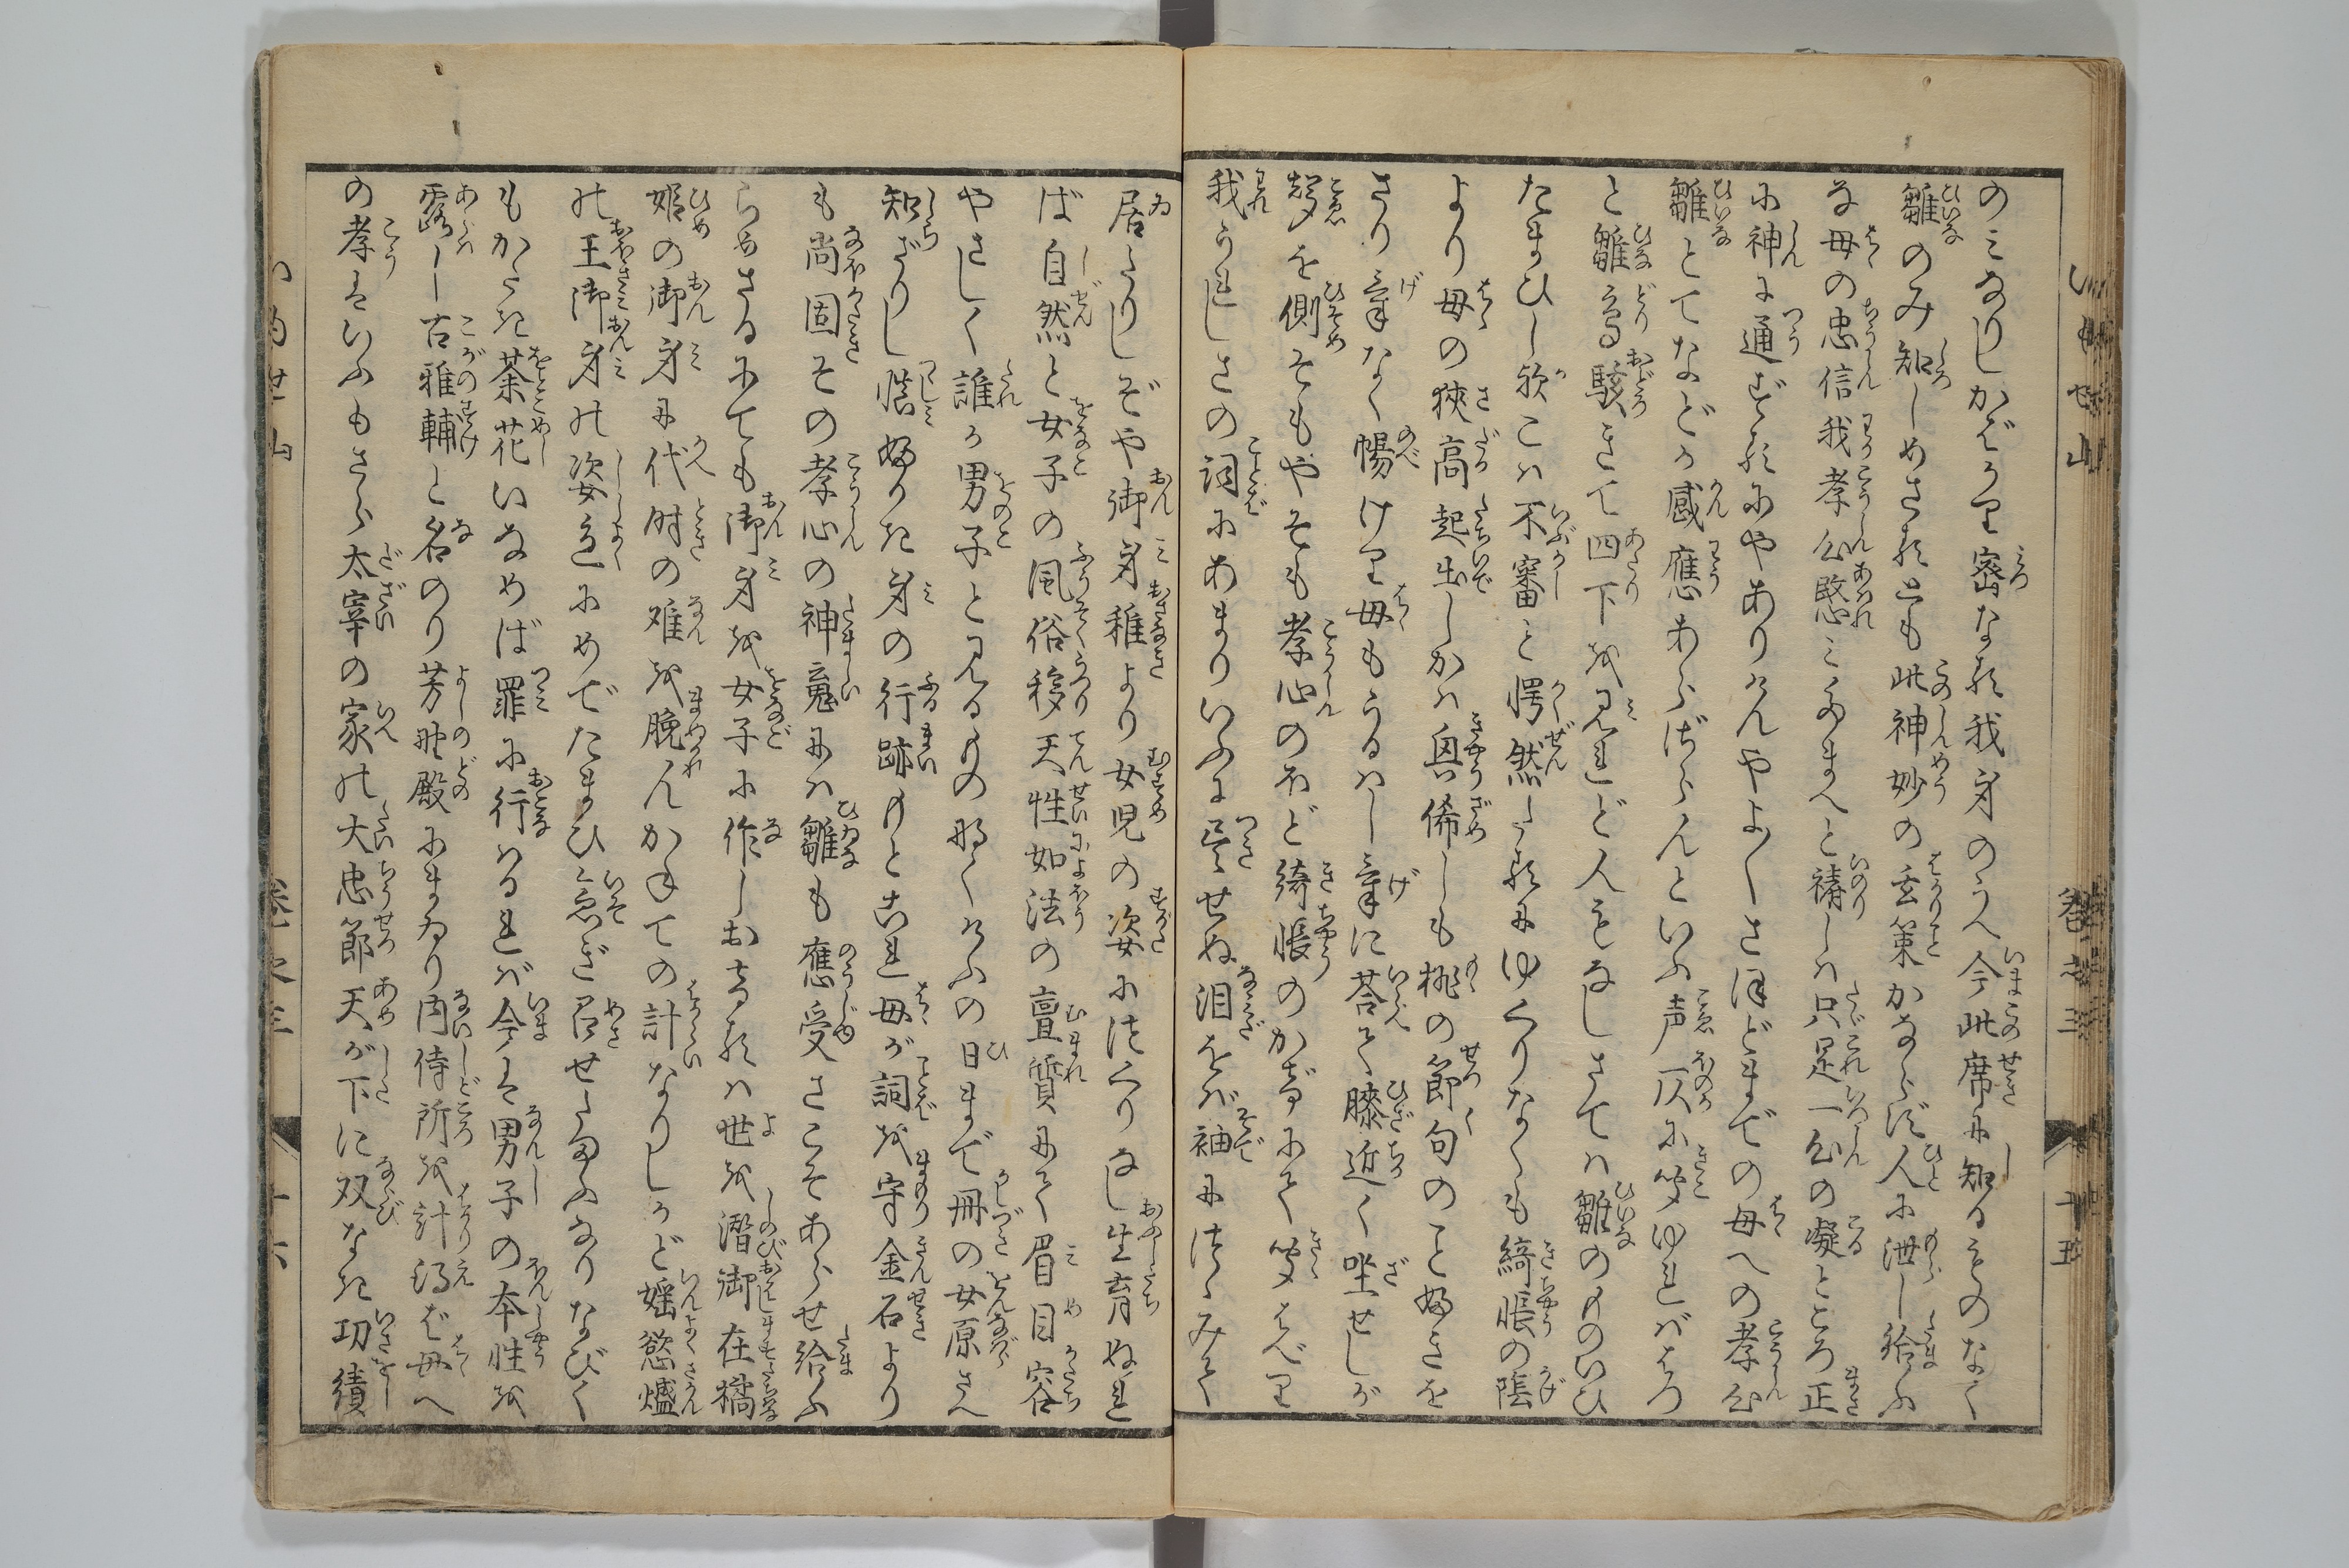 のみなりしかばかりに密なる我身のうへ今此席に知るものなく
雛のみ知しめさるとも此神妙の玄策かならず人に泄し給ふ
な母の忠信我孝心愍みたまへと祷しハ只是一心の凝ところ正
に神に通ずるにやありけんやよ〳〵さほどまでの母への孝心
雛とてなどか感應あらざらんといふ声仄に聞ゆればはつ
と雛鳥駭きて四下を見れど人もなしさてハ雛のものいひ
たまひし歟こハ不審と愕然たるにゆくりなくも綺帳の陰
より母の狭高起出しかハ興倦しも桃の節句のこと好きを
さり気なく暢けに母もうるハし気に荅て膝近く坐せしが
声を側そもやそも孝心のほど綺帳のかげにて聞はべり
我うれしさの詞にあまりいふに尽せぬ泪をバ袖につゝみて
居たりしぞや御身稚より女児の姿につくりなし生育ぬれ
ば自然と女子の風俗移天性如法の亶質にて眉目容
やさしく誰か男子と見るもの那くけふの日まで冊の女原さへ
知ざりし憤好りた身の行跡もと是母が詞を守金石より
も尚固その孝心の神魂にハ雛も應受さこそあらせ給ふ
らめさるにても御身を女子に作しおきるハ世を潜御在橘
姫の御身に代時の难を脱んかねての計なりしかど婬慾熾
の王御身の姿色にめでたまひ急ぎ召せたまふなりなびく
もかたき荼花いなめば罪に行ハるれバ今は男子の本性を
露し古雅輔と名のり芳埜殿にまゐり内侍所を計得ば母へ
の孝はいふもさら太宰の家の大忠節天が下に双なき功績
巻之三
十五
十六